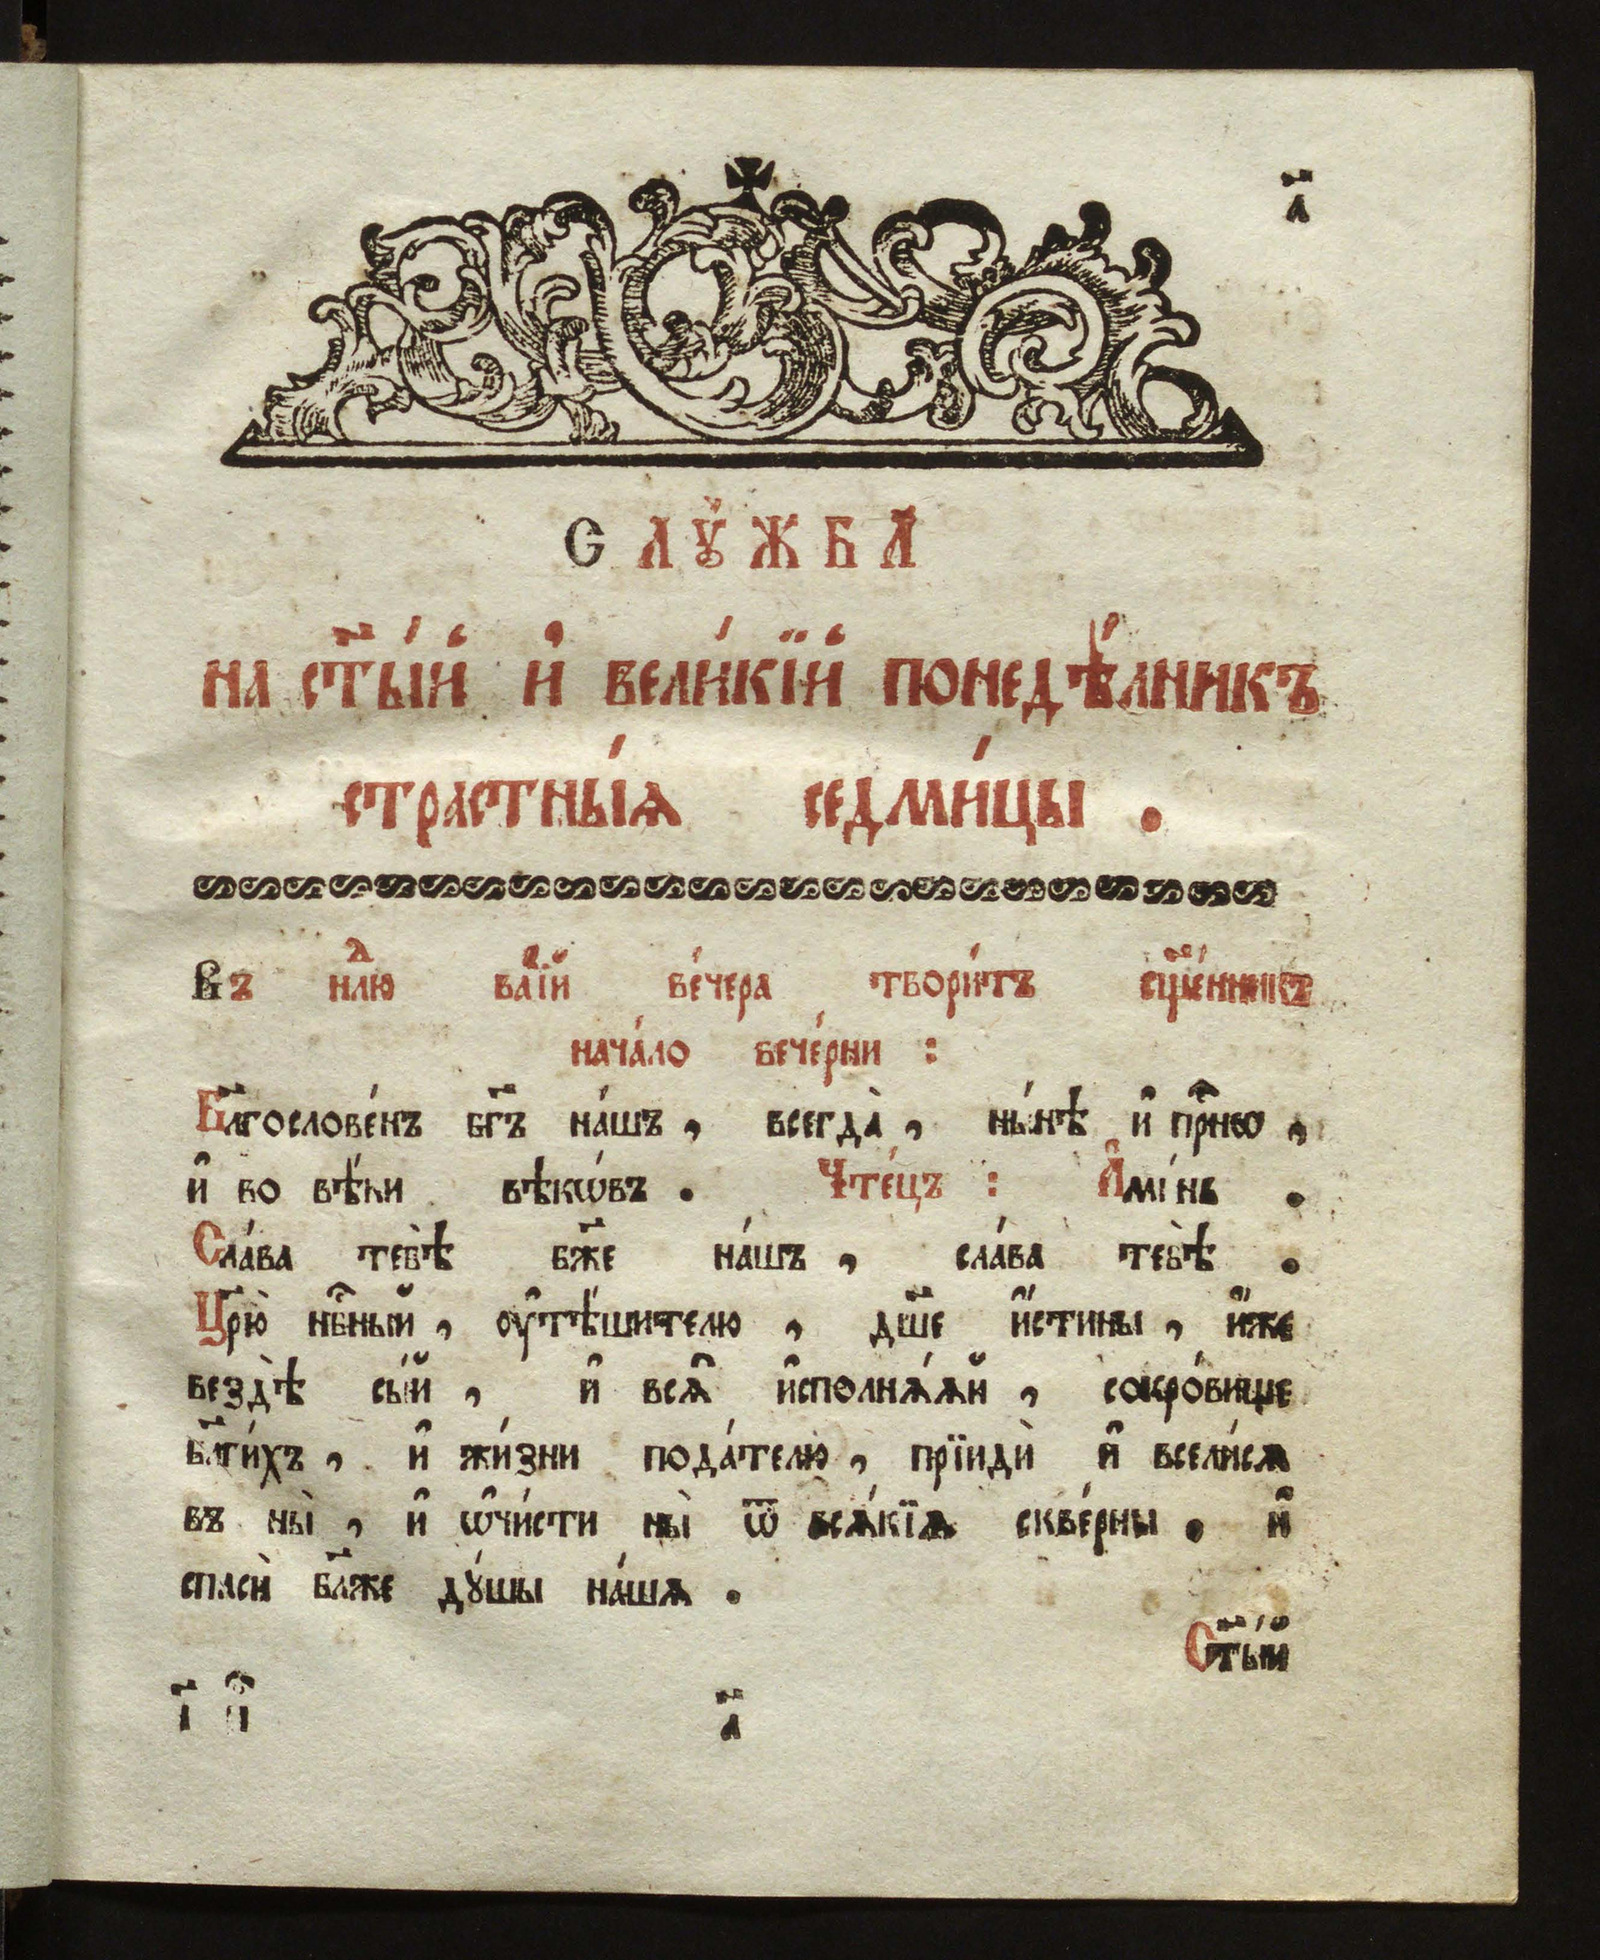 а҃
СЛꙊ́ЖБА
на ст҃ы́й и҆ вели́кїй понедѣ́лникъ
страстны́ѧ седми́цы .
Въ нⷣлю ва́їй ве́чера твори́тъ сщ҃е́нникъ
нача́ло вече́рни :
Бл҃гослове́нъ бг҃ъ на́шъ , всегда̀ , ны́нѣ и҆ при́снѡ ,
и҆ во вѣ́ки вѣкѡ́въ . Чте́цъ : А҆ми́нь .
Сла́ва тебѣ̀ бж҃е на́шъ , сла́ва тебѣ̀ .
Цр҃ю̀ нбⷭ҇ный , оу҆тѣ́шителю , дш҃е и҆́стины , и҆́же
вездѣ̀ сы́й , и҆ всѧ̑ и҆сполнѧ́ѧй , сокро́вище
бл҃ги́хъ , и҆ жи́зни пода́телю , прїидѝ и҆ всели́сѧ
въ ны̀ , и҆ ѡ҆чи́сти ны̀ ѿ всѧ́кїѧ скве́рны . и҆
спасѝ бл҃же дꙋ́шы на́шѧ .
Ст҃ы́й
І҃ П҃ а҃